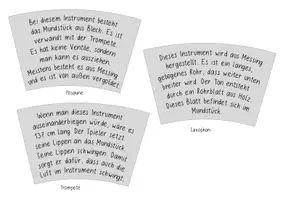 Bei diesem Instrument besteht
das Mundstück aus Blech. Es ist
verwandt mit der Trompete.
Es hat keine Ventile, sondern
man kann es ausziehen.
Meistens besteht es aus Messing
und es ist von außen vergoldet.
Posaune
Dieses Instrument wird aus Messing
hergestellt. Es ist ein langes,
gebogenes Rohr, dass weiter unten
breiter wird. Der Ton entsteht
durch ein Rohrblatt aus Holz.
Dieses Blatt befindet sich im
Mundstück.
Saxophon
Wenn man dieses Instrument
auseinanderbiegen würde, wäre es
137 cm lang. Der Spieler setzt
seine Lippen an das Mundstück.
Seine Lippen schwingen. Damit
sorgt er dafür, dass auch die
Luft im Instrument schwingt.
Trompete